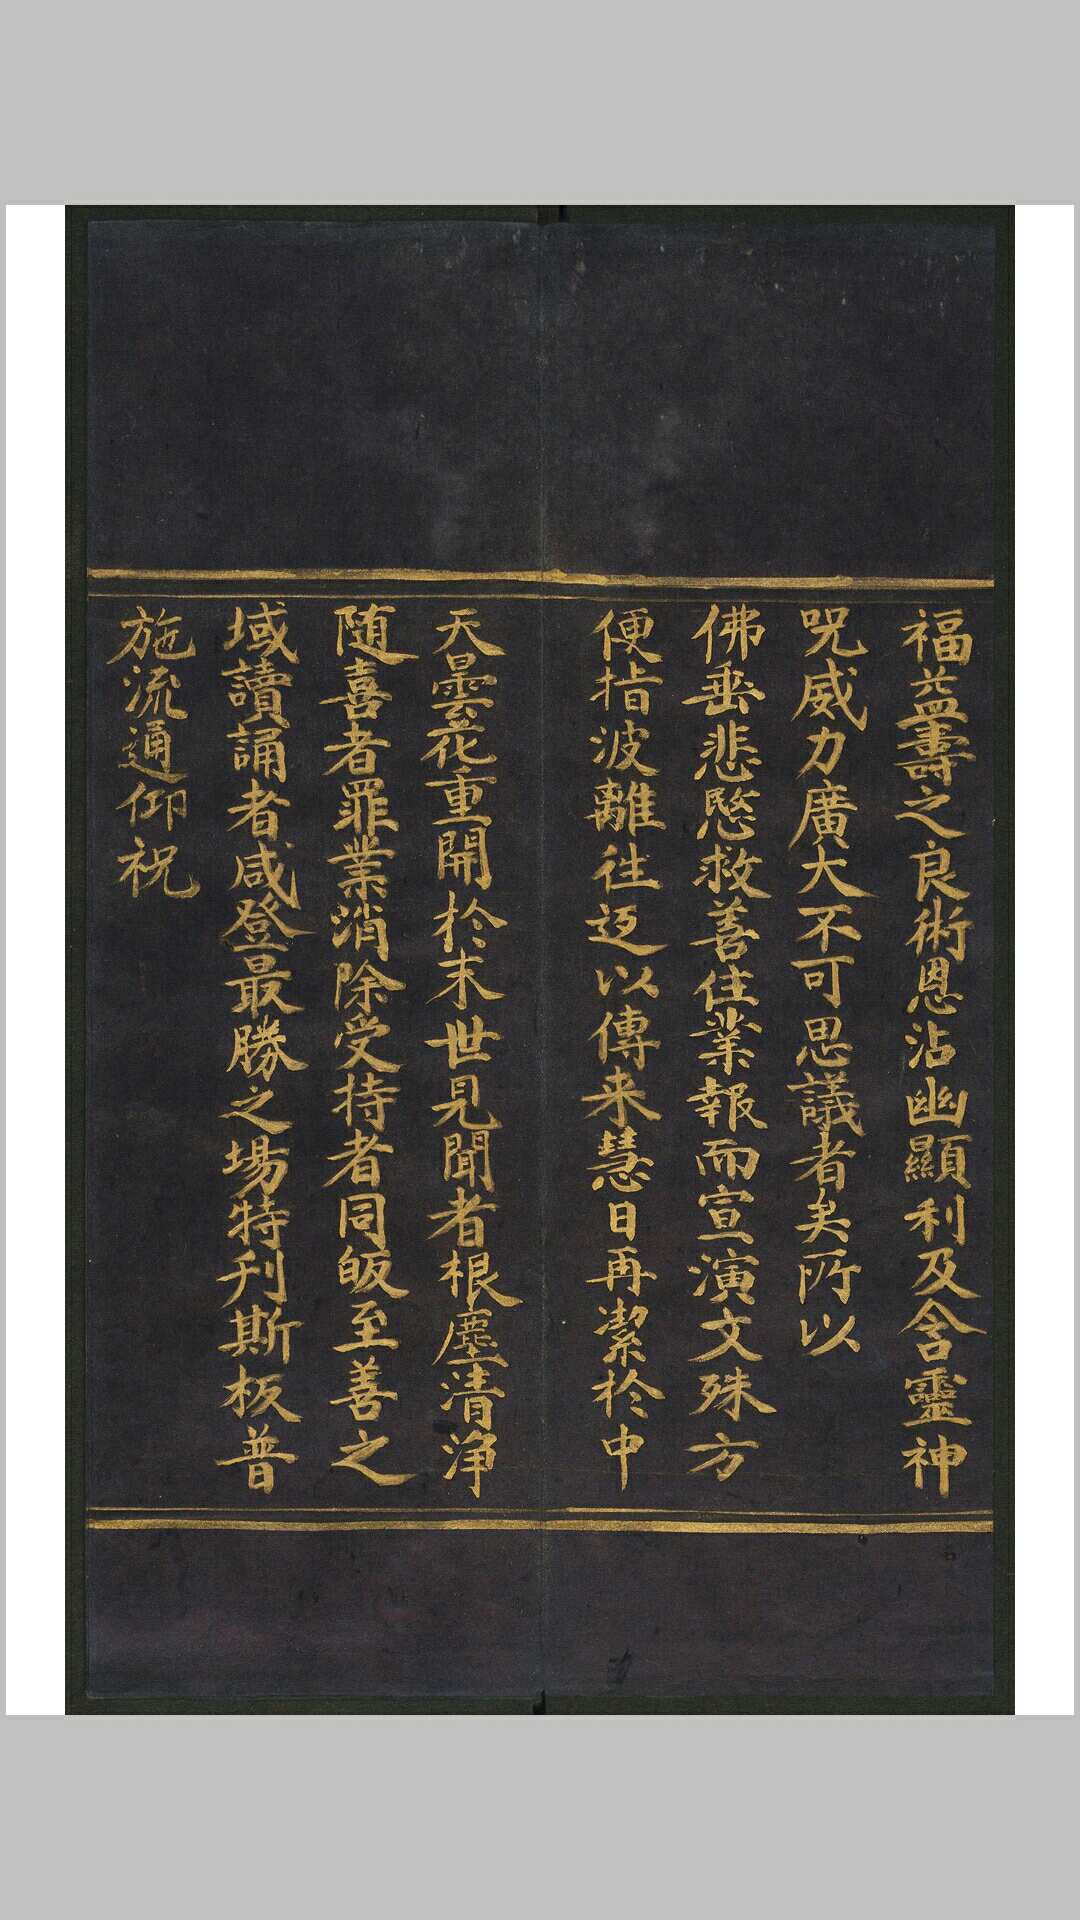 福益壽之良術恩沾幽顯利及含靈神
咒威力廣大不可思議者矣所以
佛垂悲愍救善住業報而宣演文殊方
便指波離往返以傳来慧日再潔於中
天曇花重開於末世見聞者根塵清淨
随喜者罪業消除受持者同皈至善之
域讀誦者咸登最勝之場特刋斯板普
施流通仰祝